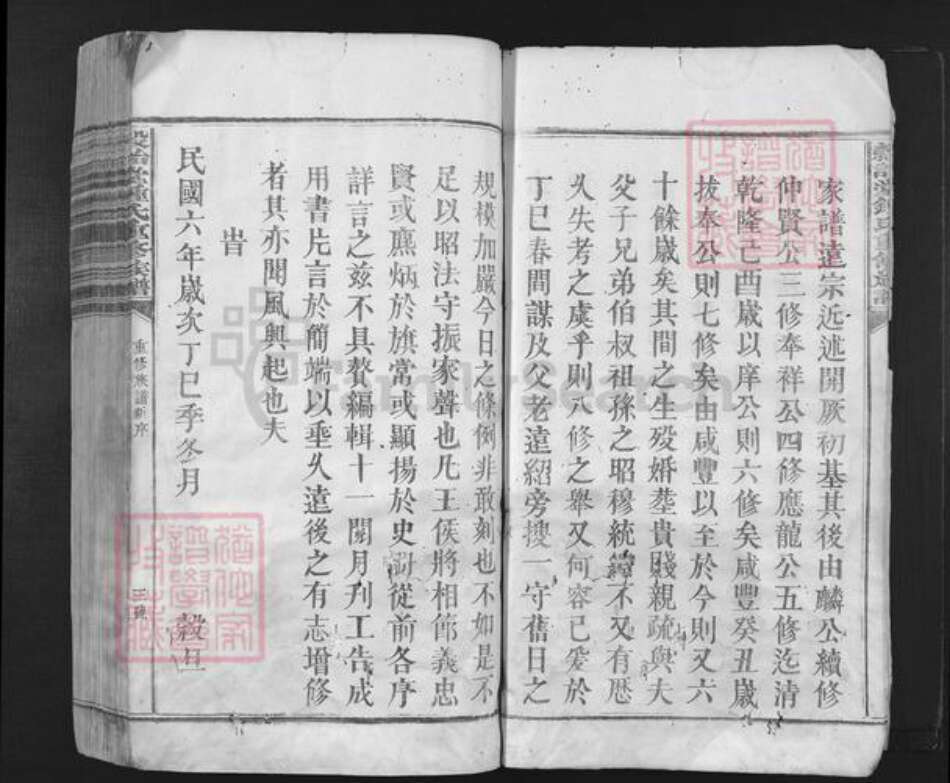 家譜遠宗近述開厥初基其後由麟公續修
仲賢公三修奉祥公四修應龍公五修迄清
乾隆己酉歲以庠公則六修矣咸豐癸丑歲
拔奉公則七修矣由咸豐以至於今則又六
十餘歲矣其間之生歿婚塟貴賤親疏與夫
父子兄弟伯叔祖孫之昭穆統緒不又有歷
久失考之虞乎則八修之舉又何容已爰於
丁巳春間謀及父老遠紹旁搜一守舊日之
規模加嚴今日之條例非敢刻也不如是不
足以昭法守振家聲也凡王侯將相節義忠
賢或廌炳於旗常或顯揚於史冊從前各序
詳言之茲不具贅編輯十一閱月刋工告成
用書片言於簡端以垂久遠後之有志增修
者其亦聞風興起也夫
旹
民國六年歲次丁巳季冬月 穀旦
重修族譜新序
三
FamilySearch